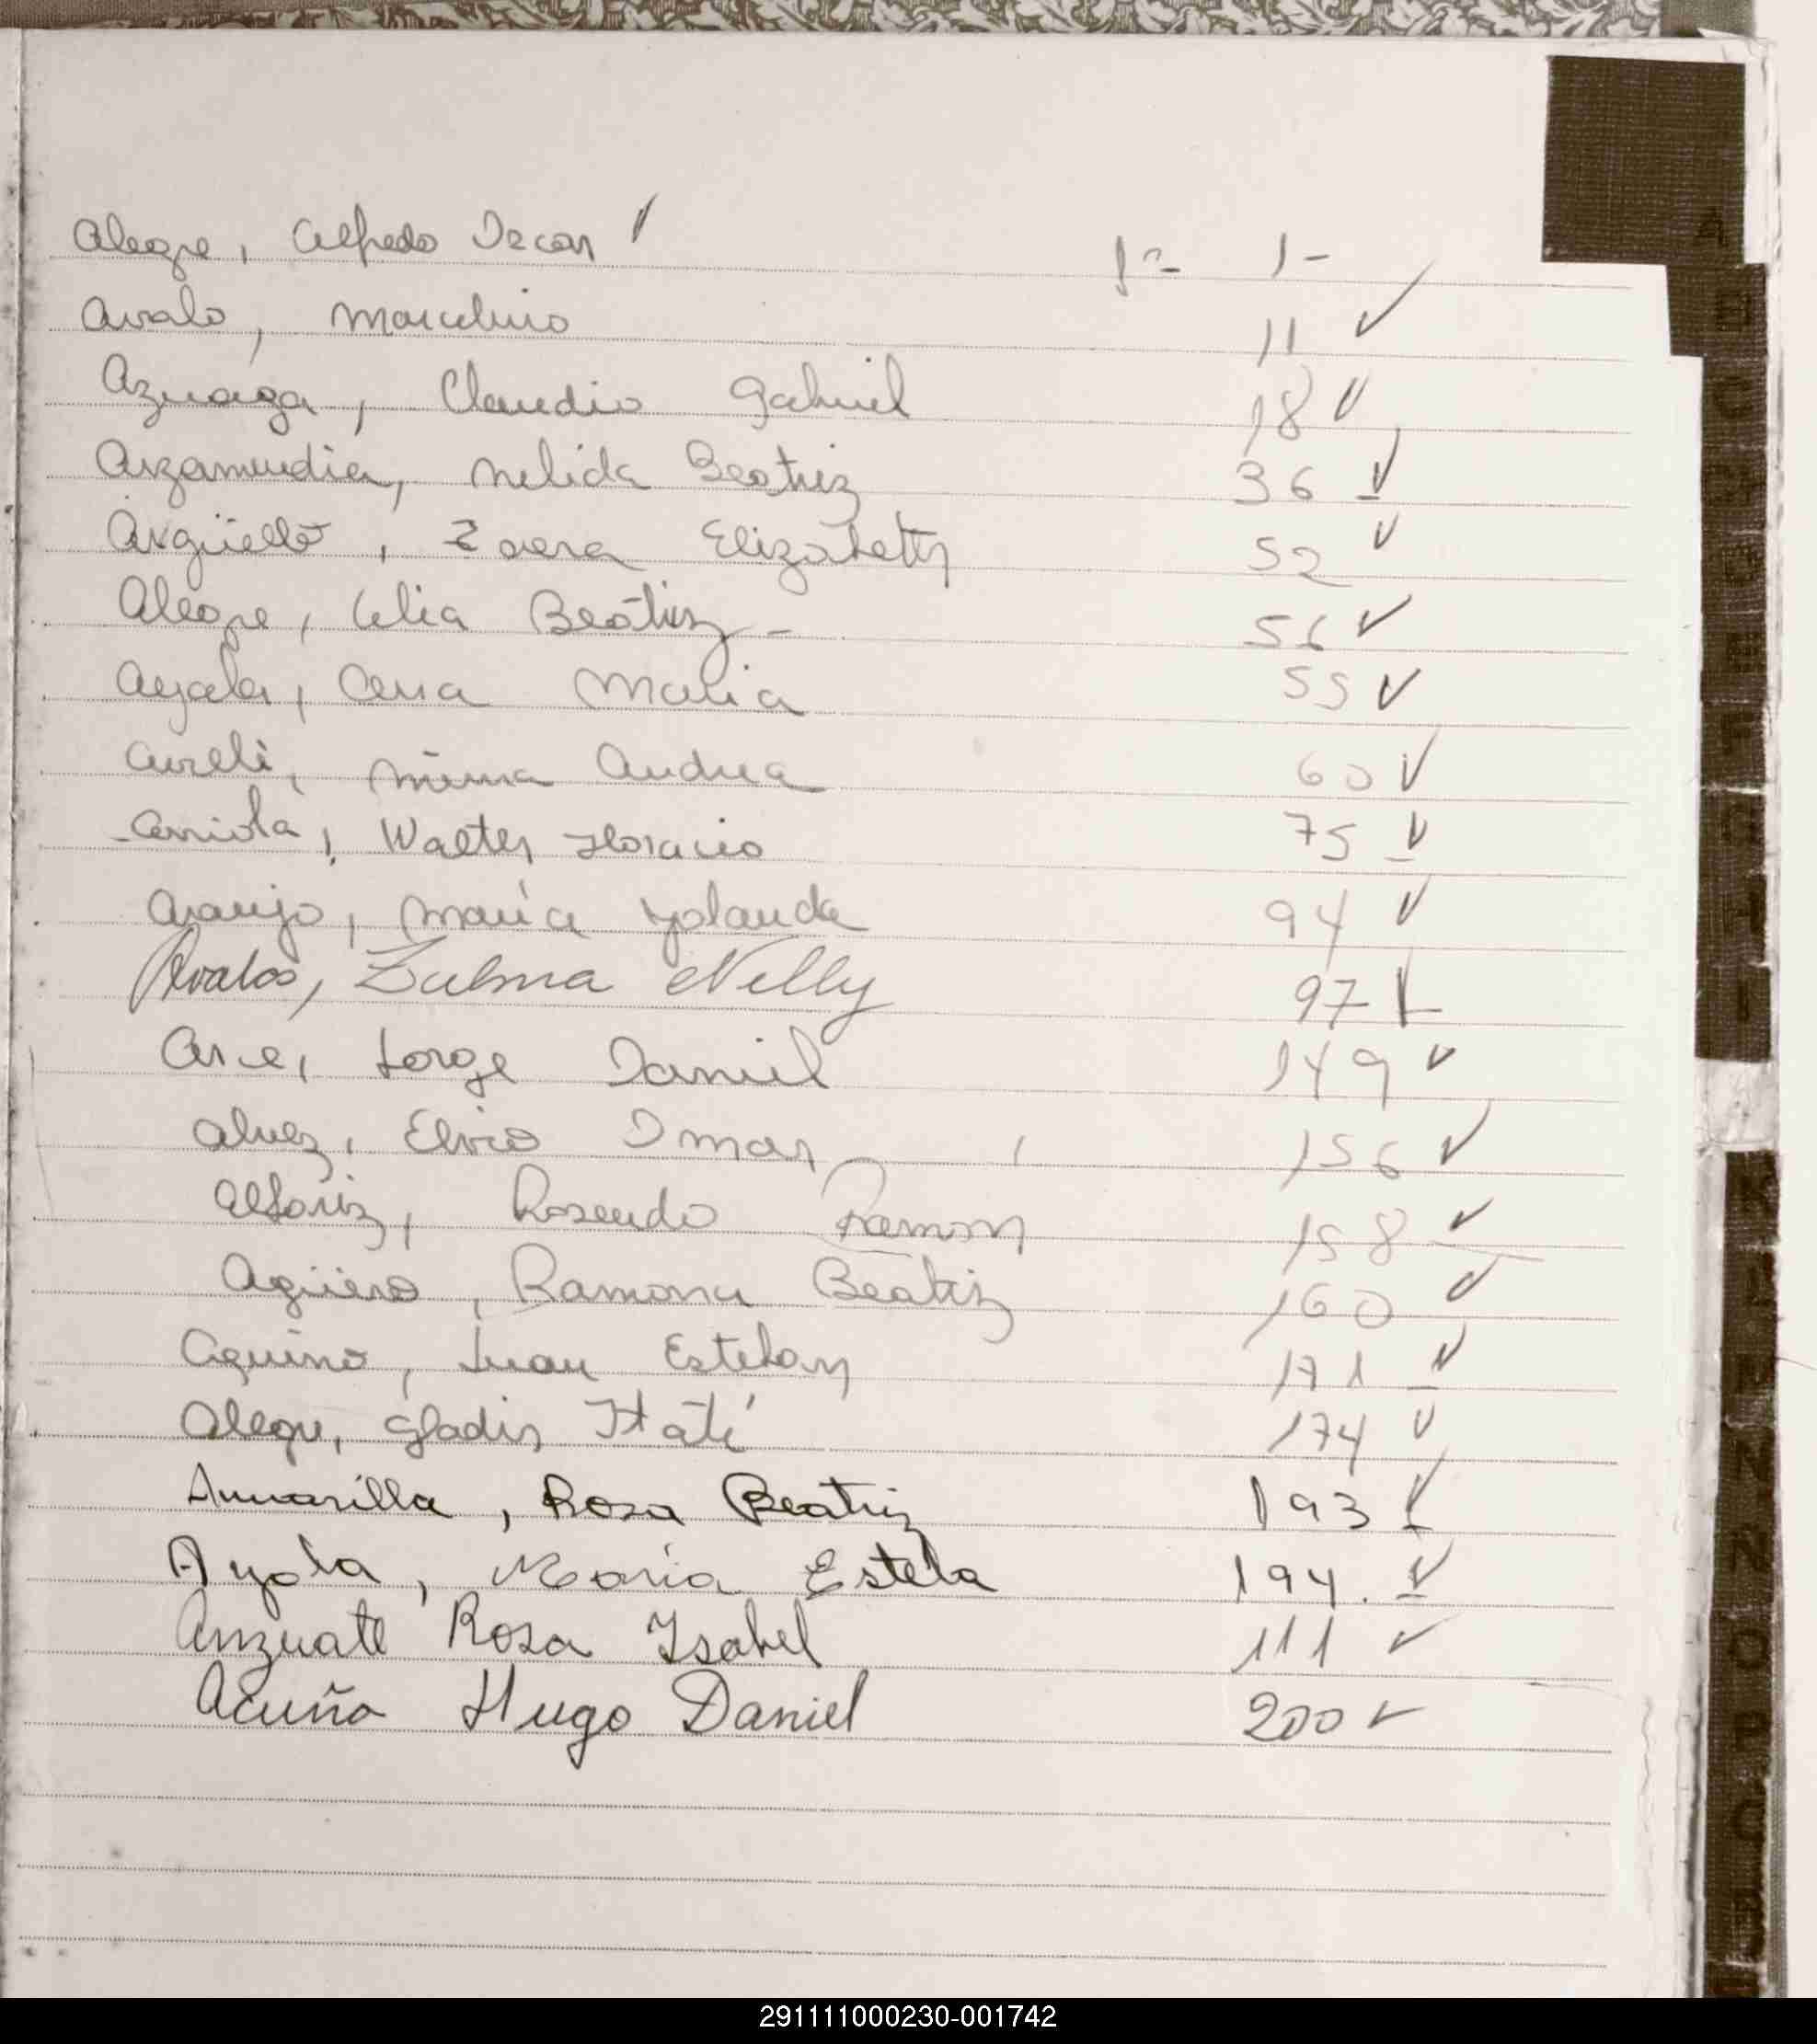 Alegre, Alfredo Oscar f= 1-
Avalo, Marcelino 11
Azuaga, Claudio Gabriel 18
Arzamendia, Nelida Beatriz 36
Argüello, Elizabeth 52
Alegre, Celia Beatriz - 56
Ayala, Ana Maria 55
Aureli, Mirna Andrea 60
Arriola, Walter Horacio 75
Araujo, María Yolanda 94
Avalos, Zulma Nelly 97
Arce, Jorge Daniel 149
Alvez, Elvio Omar 156
Alfariz, Rosendo Ramon 158
Agüero, Ramona Beatriz 160
Aquino, Juan Esteban 171
Alegre, Gladis Itatí 174
Amarilla, Rosa Beatriz 193
Ayala, María Estela 194.
Anzuate Rosa Isabel 111
Acuña Hugo Daniel 200
A
B
C
291111000230-001742